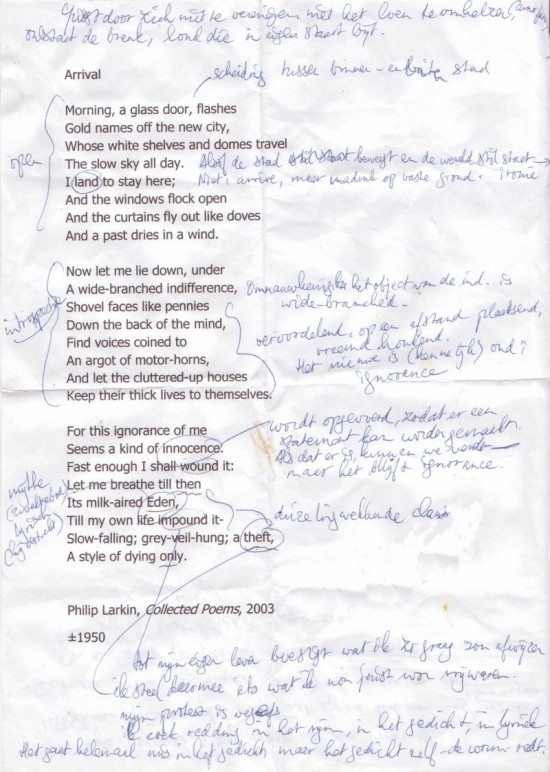 juist door zich niet te verenigen, met het leven te omhelzen,
ontstaat de breuk, hond die in eigen staart bijt.
Arrival
scheiding tussen binnen- en buiten stad
Morning, a glass door, flashes
Gold names off the new city,
Whose white shelves and domes travel
open
The slow sky all day. Alsof de stad beweegt en de wereld stil staat
I land to stay here; Niet: arrive, maar vaste grond. ironie
And the windows flock open
And the curtains fly out like doves
And a past dries in a wind.
Now let me lie down, under
A wide-branched indifference, het object van de ind. is
wide-branched.
introspectie
Shovel faces like pennies
Down the back of the mind, veroordelend, op een afstand plaatsend,
Find voices coined to vreemd houdend.
An argot of motor-horns, Het nieuwe is (kennelijk) ond?
And let the cluttered-up houses ignorance
Keep their thick lives to themselves.
For this ignorance of me wordt opgevoerd, zodat er een
Seems a kind of innocence. statement kan worden gemaakt.
Fast enough I shall wound it: Als dat er is, kunnen we verder
Let me breathe till then maar het blijft ignorance.
mythe
Its milk-aired Eden,
Till my own life impound it-
Slow-falling; grey-veil-hung; a theft,
A style of dying only.
Philip Larkin, Collected Poems, 2003
±1950
tot mijn eigen leven bevestigt wat ik zo graag zou afwijzen
ik steel iets wat ik nou juist wou vrijwaren.
mijn protest is
ik zoek redding in het rijm, in het gedicht, in lyriek
Het gaat helemaal mis in het gedicht, maar het gedicht zelf - de vorm - redt.